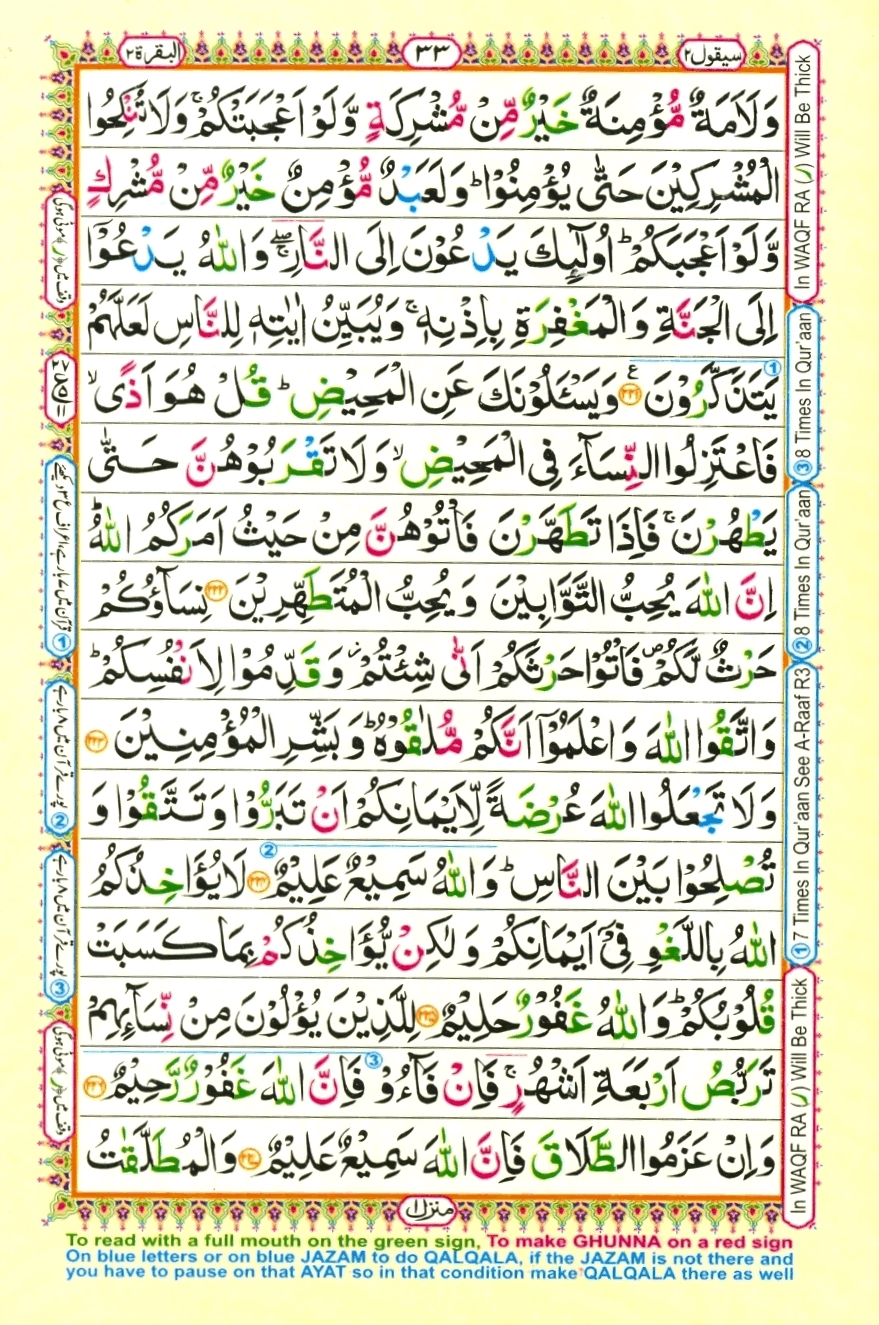 البقرة ٢
٣٣
سيقول ٢
وَلَاَمَةٌ مُّؤْمِنَةٌ خَيْرٌ مِّنْ مُّشْرِكَةٍ وَّلَوْ اَعْجَبَتْكُمْ ۚ وَلَا تُنْكِحُوا
الْمُشْرِكِيْنَ حَتّٰى يُؤْمِنُوْا ؕ وَلَعَبْدٌ مُّؤْمِنٌ خَيْرٌ مِّنْ مُّشْرِكٍ
وَّلَوْ اَعْجَبَكُمْ ؕ اُولٰٓئِكَ يَدْعُوْنَ اِلَى النَّارِ ۖۚ وَاللّٰهُ يَدْعُوْٓا
اِلَى الْجَنَّةِ وَالْمَغْفِرَةِ بِاِذْنِهٖ ۚ وَيُبَيِّنُ اٰيٰتِهٖ لِلنَّاسِ لَعَلَّهُمْ
يَتَذَكَّرُوْنَ ﴿۲۲۱﴾ ع وَيَسْـَٔلُوْنَكَ عَنِ الْمَحِيْضِ ؕ قُلْ هُوَ اَذًى ۙ
فَاعْتَزِلُوا النِّسَآءَ فِى الْمَحِيْضِ ۙ وَلَا تَقْرَبُوْهُنَّ حَتّٰى
يَطْهُرْنَ ۚ فَاِذَا تَطَهَّرْنَ فَاْتُوْهُنَّ مِنْ حَيْثُ اَمَرَكُمُ اللّٰهُ ؕ
اِنَّ اللّٰهَ يُحِبُّ التَّوَّابِيْنَ وَيُحِبُّ الْمُتَطَهِّرِيْنَ ﴿۲۲۲﴾ نِسَآؤُكُمْ
حَرْثٌ لَّكُمْ ۪ فَاْتُوْا حَرْثَكُمْ اَنّٰى شِئْتُمْ ۫ وَقَدِّمُوْا لِاَنْفُسِكُمْ ؕ
وَاتَّقُوا اللّٰهَ وَاعْلَمُوْٓا اَنَّكُمْ مُّلٰقُوْهُ ؕ وَبَشِّرِ الْمُؤْمِنِيْنَ ﴿۲۲۳﴾
وَلَا تَجْعَلُوا اللّٰهَ عُرْضَةً لِّاَيْمَانِكُمْ اَنْ تَبَرُّوْا وَتَتَّقُوْا وَ
تُصْلِحُوْا بَيْنَ النَّاسِ ؕ وَاللّٰهُ سَمِيْعٌ عَلِيْمٌ ﴿۲۲۴﴾ لَا يُؤَاخِذُكُمُ
اللّٰهُ بِاللَّغْوِ فِىْٓ اَيْمَانِكُمْ وَلٰكِنْ يُّؤَاخِذُكُمْ بِمَا كَسَبَتْ
قُلُوْبُكُمْ ؕ وَاللّٰهُ غَفُوْرٌ حَلِيْمٌ ﴿۲۲۵﴾ لِلَّذِيْنَ يُؤْلُوْنَ مِنْ نِّسَآئِهِمْ
تَرَبُّصُ اَرْبَعَةِ اَشْهُرٍ ۚ فَاِنْ فَآءُوْ فَاِنَّ اللّٰهَ غَفُوْرٌ رَّحِيْمٌ ﴿۲۲۶﴾
وَاِنْ عَزَمُوا الطَّلَاقَ فَاِنَّ اللّٰهَ سَمِيْعٌ عَلِيْمٌ ﴿۲۲۷﴾ وَالْمُطَلَّقٰتُ
منزل ١
In WAQF RA (ر) Will Be Thick
③ 8 Times In Qur'aan
② 8 Times In Qur'aan
① 7 Times In Qur'aan See A-Raaf R3
In WAQF RA (ر) Will Be Thick
To read with a full mouth on the green sign, To make GHUNNA on a red sign
On blue letters or on blue JAZAM to do QALQALA, if the JAZAM is not there and
you have to pause on that AYAT so in that condition make QALQALA there as well